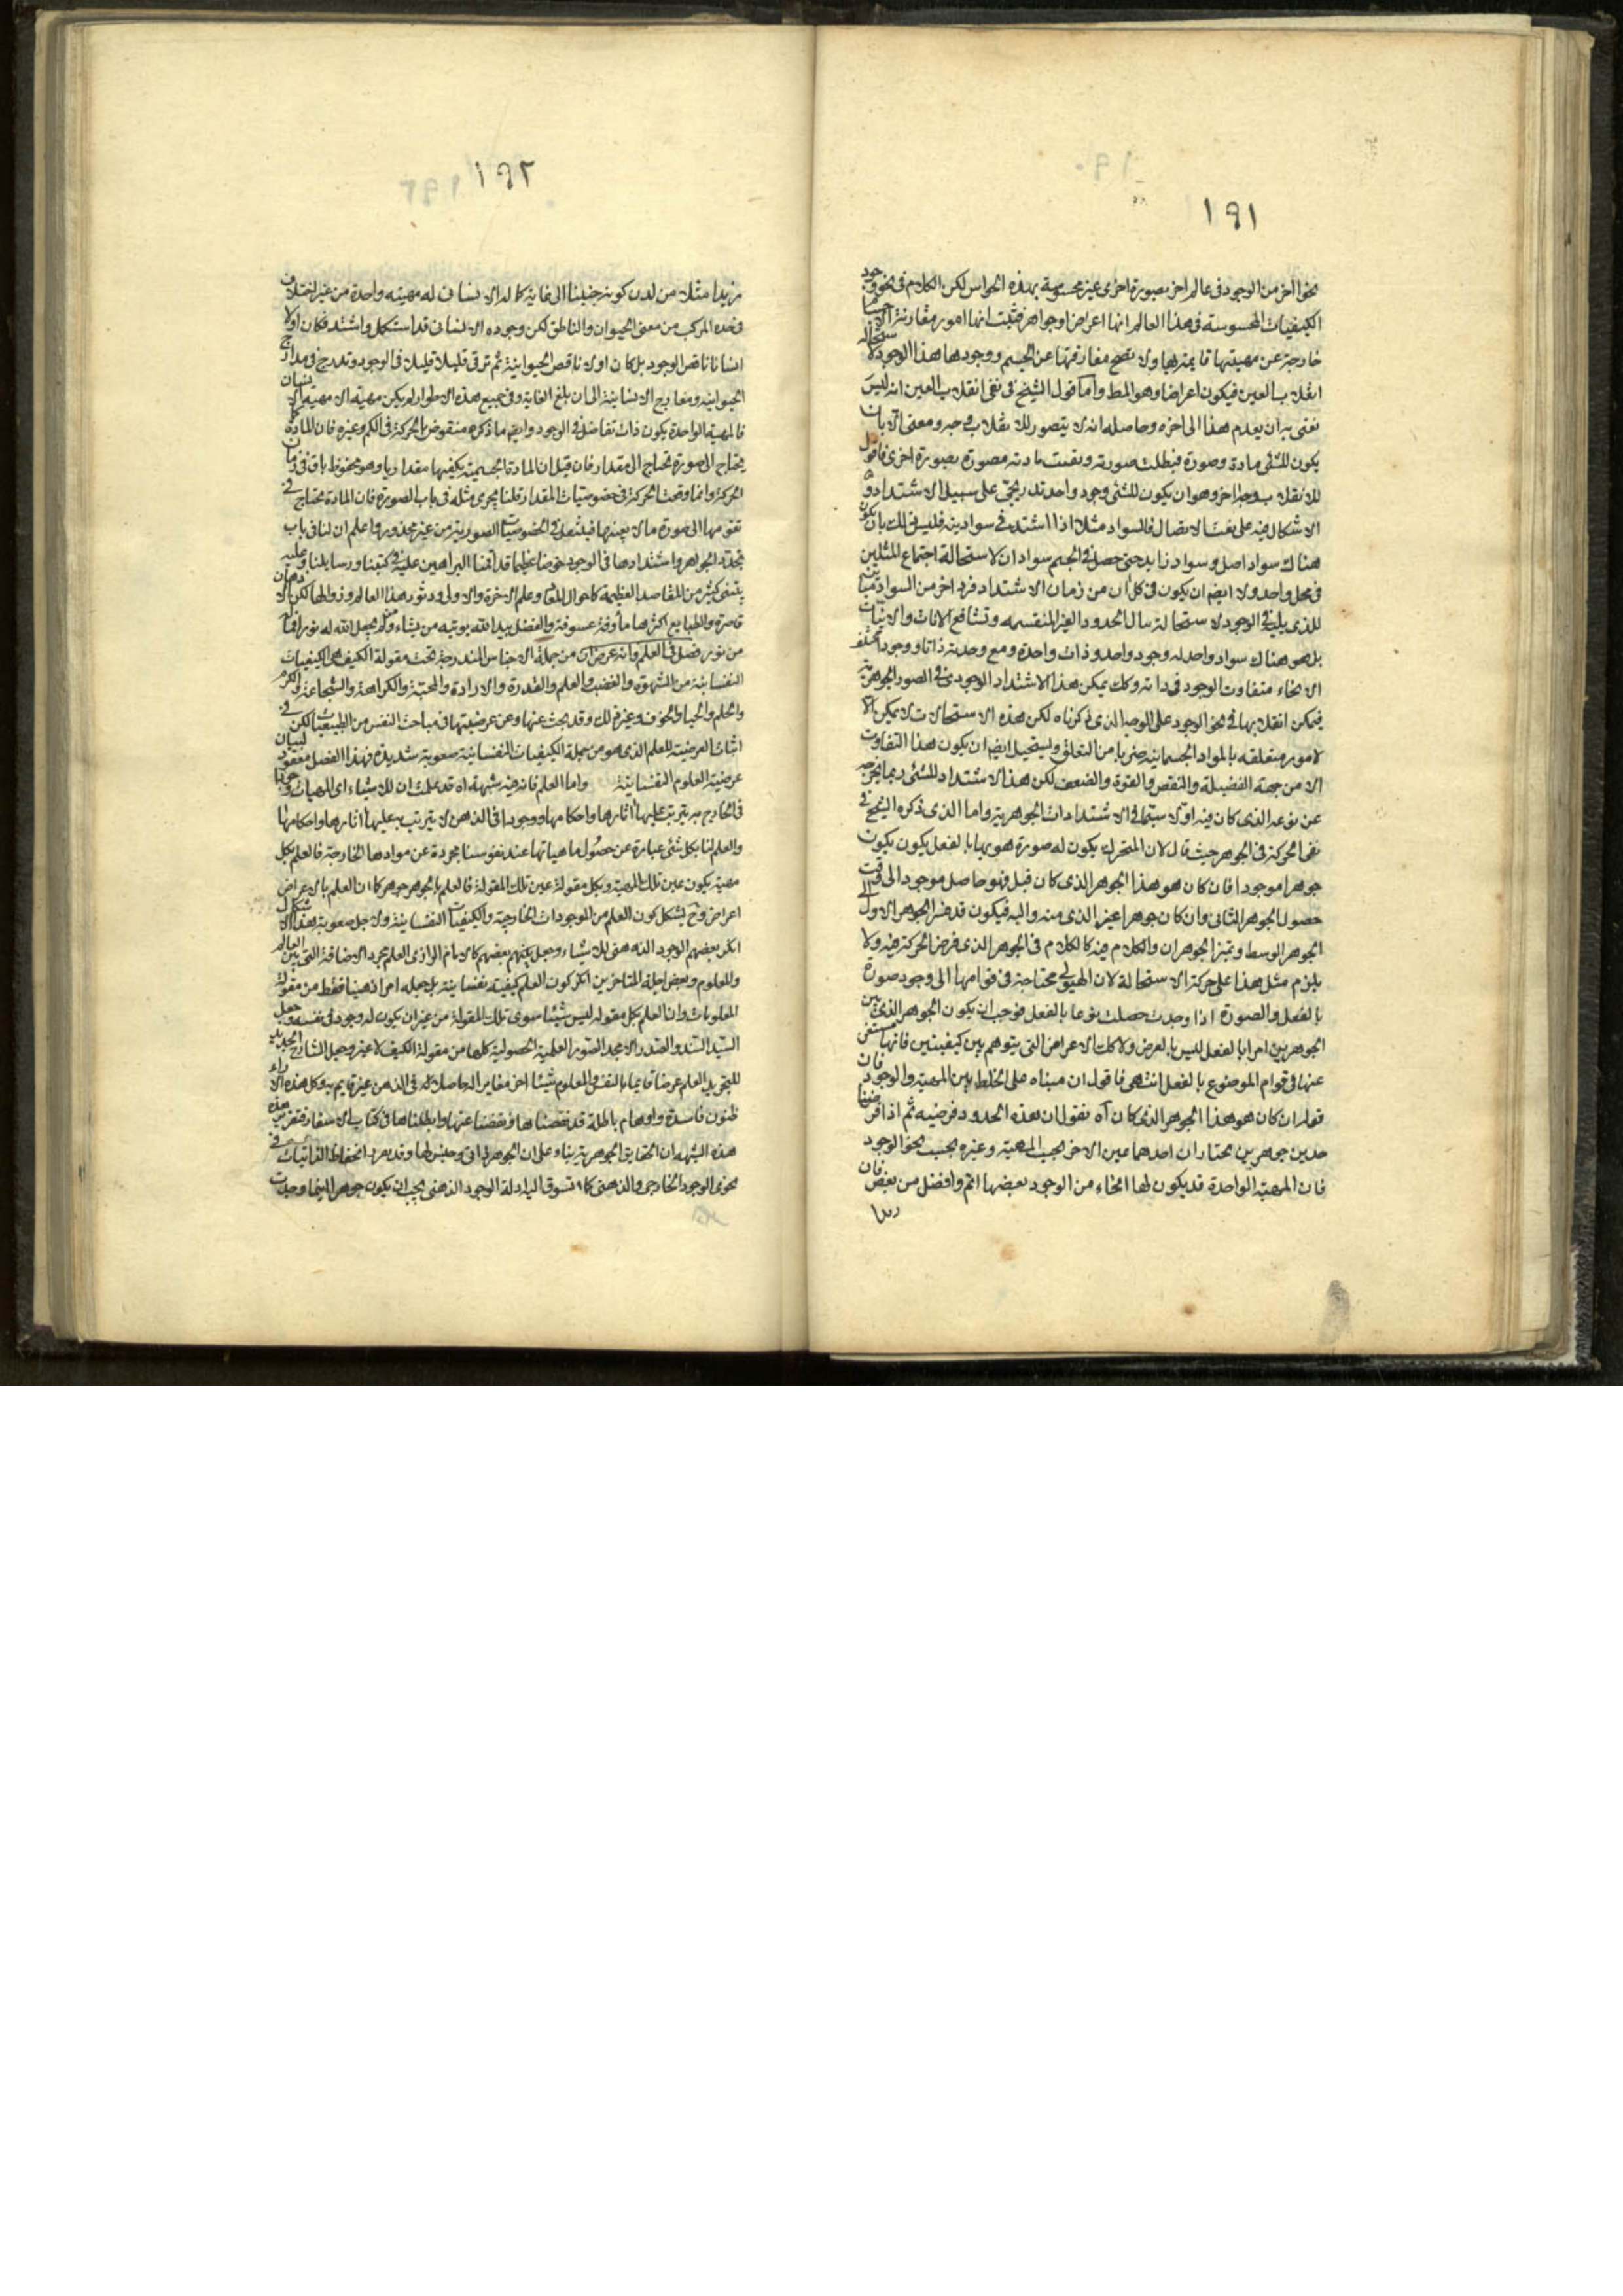 ١٩١
نحوا آخر من الوجود فى عالم اخر بصورة اخرى غير محسوسة بهذه الحواس لكن الكلام فى نحو وجود
الكيفيات المحسوسة فى هذا العالم انها اعراض او جواهر فثبت انها امور مقارنتها الاجسام
خارجة عن مهيتها قايمة بها ولا يصح مفارقتها عن الجسم ووجودها هذا الوجود لاستحالة
انقلاب العين فيكون اعراضا وهو المط واما قول الشيخ فى نفى انقلاب العين انه ليس
نعنى به ان يعدم هذا الى اخره وحاصله انه لا يتصور للانقلاب فى حبر ومعنى الا بان
يكون للشئ مادة وصورة فبطلت صورته وبقيت مادته مصورة بصورة اخرى فاقول
للانقلاب وجه اخر وهو ان يكون للشئ وجود واحد تدريجى على سبيل الاشتداد و
الاشكال فيه على نعت الاتصال فالسواد مثلا اذا اشتد فى سواديته فليس ذلك بان يكون
هناك سواد اصل وسواد زايد حتى حصل فى الجسم سوادان لاستحالة اجتماع المثلين
فى محل واحد ولا ايضم ان يكون فى كل ان من زمان الاشتداد فرد اخر من السواد مباينة
للذى يليه فى الوجود لاستحالة تتالى الحدود الغير المنقسمه وتشافع الانات والانيات
بل هو هناك سواد واحد له وجود واحد وذات واحدة ومع وحدته ذاتا ووجودا مختلف
الانحاء متفاوت الوجود فى ذاته وكك يمكن هذا الاشتداد الوجودى فى الصور الجوهرية
فيمكن انقلابها فى نحو الوجود على الوجه الذى ذكرناه لكن هذه الاستحالات لا يمكن الا
لامور متعلقه بالمواد الجسمانيه ضربا من التعلق ويستحيل ايضم ان يكون هذا التفاوت
الا من جهة الفضيلة والنقص والقوة والضعف لكن هذا الاشتداد للشئ ربما يخرجه
عن نوعه الذى كان فيه اولا سيما فى الاشتدادات الجوهرية واما الذى ذكره الشيخ فى
نفى الحركة فى الجوهر حيث قال لان المتحرك يكون له صورة هو بها بالفعل يكون يكون
جوهرا موجودا فان كان هو هذا الجوهر الذى كان قبل فهو حاصل موجود الى وقت
حصول الجوهر الثانى وان كان جوهرا غير الذى منه واليه فيكون قد فسد الجوهر الاول الى
الجوهر الوسط وتميز الجوهران والكلام فيه كالكلام فى الجوهر الذى فرض الحركة فيه ولا
يلزم مثل هذا على حركة الاستحالة لان الهيولى محتاجة فى قوامها الى وجود صورة
بالفعل والصورة اذا وجدت حصلت نوعا بالفعل فوجب ان يكون الجوهر الذى بين
الجوهرين امرا بالفعل ليس بالعرض ولا كك الاعراض التى يتوهم بين كيفيتين فانها مستغن
عنها فى قوام الموضوع بالفعل انتهى فاقول ان مبناه على الخلط بين المهية والوجود فان
قوله ان كان هو هذا الجوهر الذى كان آه نقول ان هذه الحدود فرضيه ثم اذا فرضنا
حدين جوهرين نختار ان احدهما عين الاخر بحسب المهية وغيره بحسب نحو الوجود
فان المهية الواحدة قد يكون لها انحاء من الوجود بعضها اتم وافضل من بعض فان
زيدا
١٩٢
زيدا مثلا من لدن كونه جنينا الى غاية كماله الانسانى له مهيته واحدة من غير اختلاف
فى حده المركب من معنى الحيوان والناطق لكن وجوده الانسانى قد استكمل واشتد فكان اولا
انسانا ناقص الوجود بل كان اولا ناقص الحيوانية ثم ترقى قليلا قليلا فى الوجود وتدرج فى مدارج
الحيوانيه ومعارج الانسانية الى ان بلغ الغاية وفى جميع هذه الاطوار لم يكن مهيته الا مهية الانسان
فالمهية الواحدة يكون ذات تفاضل فى الوجود وايضم ما ذكره منقوض بالحركة فى الكم وغيره فان المادة كما
يحتاج الى صورة تحتاج الى مقدار فان قيل ان المادة الجسمية يكفيها مقدار ما وهو محفوظ باق فى زمان
الحركة وانما وقعت الحركة فى خصوصيات المقدار قلنا يجرى مثله فى باب الصورة فان المادة تحتاج فى
تقومها الى صورة ما لا بعينها فيتبدل فى الخصوصيات الصورية من غير محذور واعلم ان لنا فى باب
تجدد الجواهر واشتدادها فى الوجود خوضا عظيما قد اقمنا البراهين عليه فى كتبنا ورسايلنا وعليه
يبتنى كثير من المقاصد العظيمة كاحوال المعاد وعلم الاخرة والاولى ودثور هذا العالم وزوالها لكن الاذهان
قاصرة والطبايع اكثرها مأوفة عسوفة والفضل بيد الله يوتيه من يشاء ومن لم يجعل الله له نورا فما له
من نور فصل فى العلم وانه عرض ان من جملة الاجناس المندرجة تحت مقولة الكيف هى الكيفيات
النفسانية من الشهوة والغضب والعلم والقدرة والارادة والمحبة والكراهة والشجاعة والكرم
والحلم والحياء والخوف وغير ذلك وقد بحث عنها وعن عرضيتها فى مباحث النفس من الطبيعيات لكن فى
اثبات العرضية للعلم الذى هو من جملة الكيفيات النفسانية صعوبة شديدة فهذا الفصل معقود لبيان
عرضية العلوم النفسانية واما العلم فانه فيه شبهة اه قد علمت ان للاشياء اى المهيات وجودا
فى الخارج به يترتب عليها اثارها واحكامها ووجودا فى الذهن لا يترتب به عليها اثارها واحكامها
والعلم لنا بكل شئ عبارة عن حصول ماهياتها عند نفوسنا مجردة عن موادها الخارجة فالعلم بكل
مهية يكون عين تلك المهية وبكل مقولة عين تلك المقولة فالعلم بالجوهر جوهر كما ان العلم بالاعراض
اعراض وح يشكل كون العلم من الموجودات الخارجية والكيفيات النفسانية ولاجل صعوبة هذا الاشكال
انكر بعضهم الوجود الذهنى للاشياء وجعل بعضهم كالامام الرازى العلم مجرد الاضافة التى بين العالم
والمعلوم وبعض اجلة المتاخرين انكر كون العلم كيفية نفسانية بل جعله امرا ذهنيا فقط من مقولة
المعلومات وان العلم بكل مقوله ليس شيئا سوى تلك المقولة من غير ان يكون له وجود فى نفسه وجعل
السيد السند والصدر الامجد الصور العلمية الحصولية كلها من مقولة الكيف لا غير وجعل الشارح الجديد
للتجريد العلم عرضا قايما بالنفس والمعلوم شيئا اخر مغاير اله حاصلا له فى الذهن غير قايم به وكل هذه الاراء
ظنون فاسدة واوهام باطلة قد نقضناها ونقضنا عنها وابطلناها فى كتاب الاسفار فتقرير هذه
هذه الشبهه ان الحقايق الجوهرية بناء على ان الجوهر ذاتى وجنس لها وقد مرد انحفاظ الذاتيات فى
نحوى الوجود الخارجى والذهنى كما تسوق اليه ادلة الوجود الذهنى يجب ان يكون جوهرا اينما وجدت